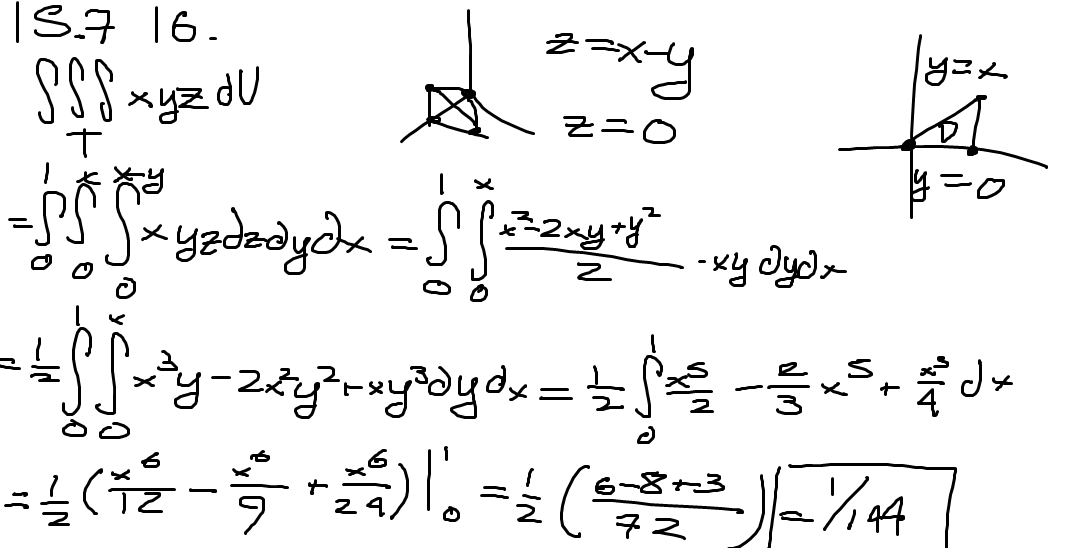 15.7 16.
z=x-y
y=x
∫∫∫_T xyz dV
z=0
D
y=0
=∫_0^1 ∫_0^x ∫_0^{x-y} xyz dz dy dx = ∫_0^1 ∫_0^x (x²-2xy+y²)/2 · xy dy dx
=1/2 ∫_0^1 ∫_0^x x³y - 2x²y² + xy³ dy dx = 1/2 ∫_0^1 x⁵/2 - 2/3 x⁵ + x⁵/4 dx
=1/2 (x⁶/12 - x⁶/9 + x⁶/24)|_0^1 = 1/2 ((6-8+3)/72) = 1/144